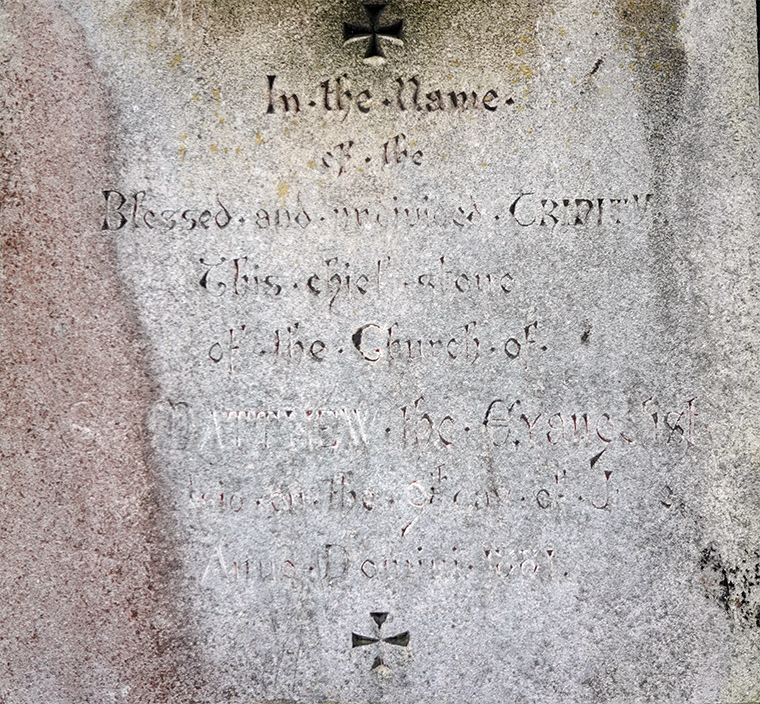 In · the · Name ·
of · the
Blessed · and · undivided · TRINITY ·
This · chief · stone
of · the · Church · of ·
S MATTHEW · the · Evangelist
laid · on · the · day · of · June
Anno · Domini ·